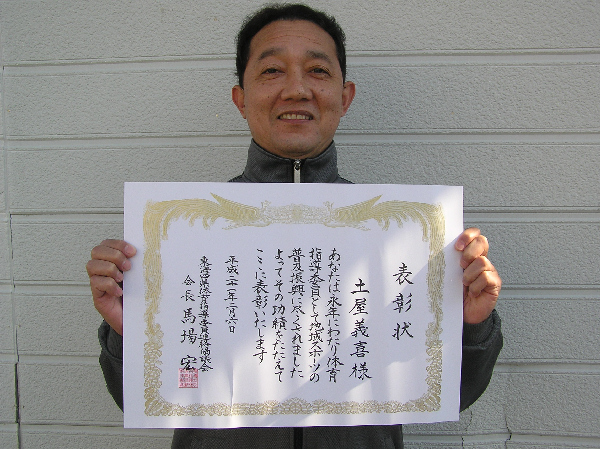 表彰状
土屋義喜様
あなたは永年にわたり体育
指導委員として地域スポーツの
普及振興に尽くされました
よってその功績をたたえて
ここに表彰いたします
平成二十一年二月六日
会長 馬場 宏